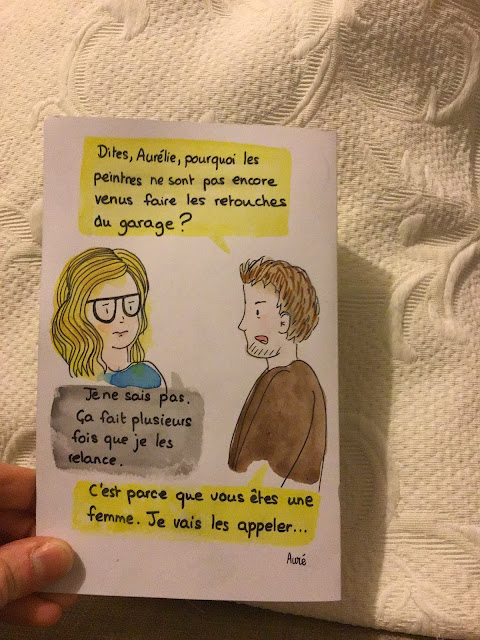 Dites, Aurélie, pourquoi les
peintres ne sont pas encore
venus faire les retouches
du garage ?
Je ne sais pas.
Ça fait plusieurs
fois que je les
relance.
C'est parce que vous êtes une
femme. Je vais les appeler...
Auré